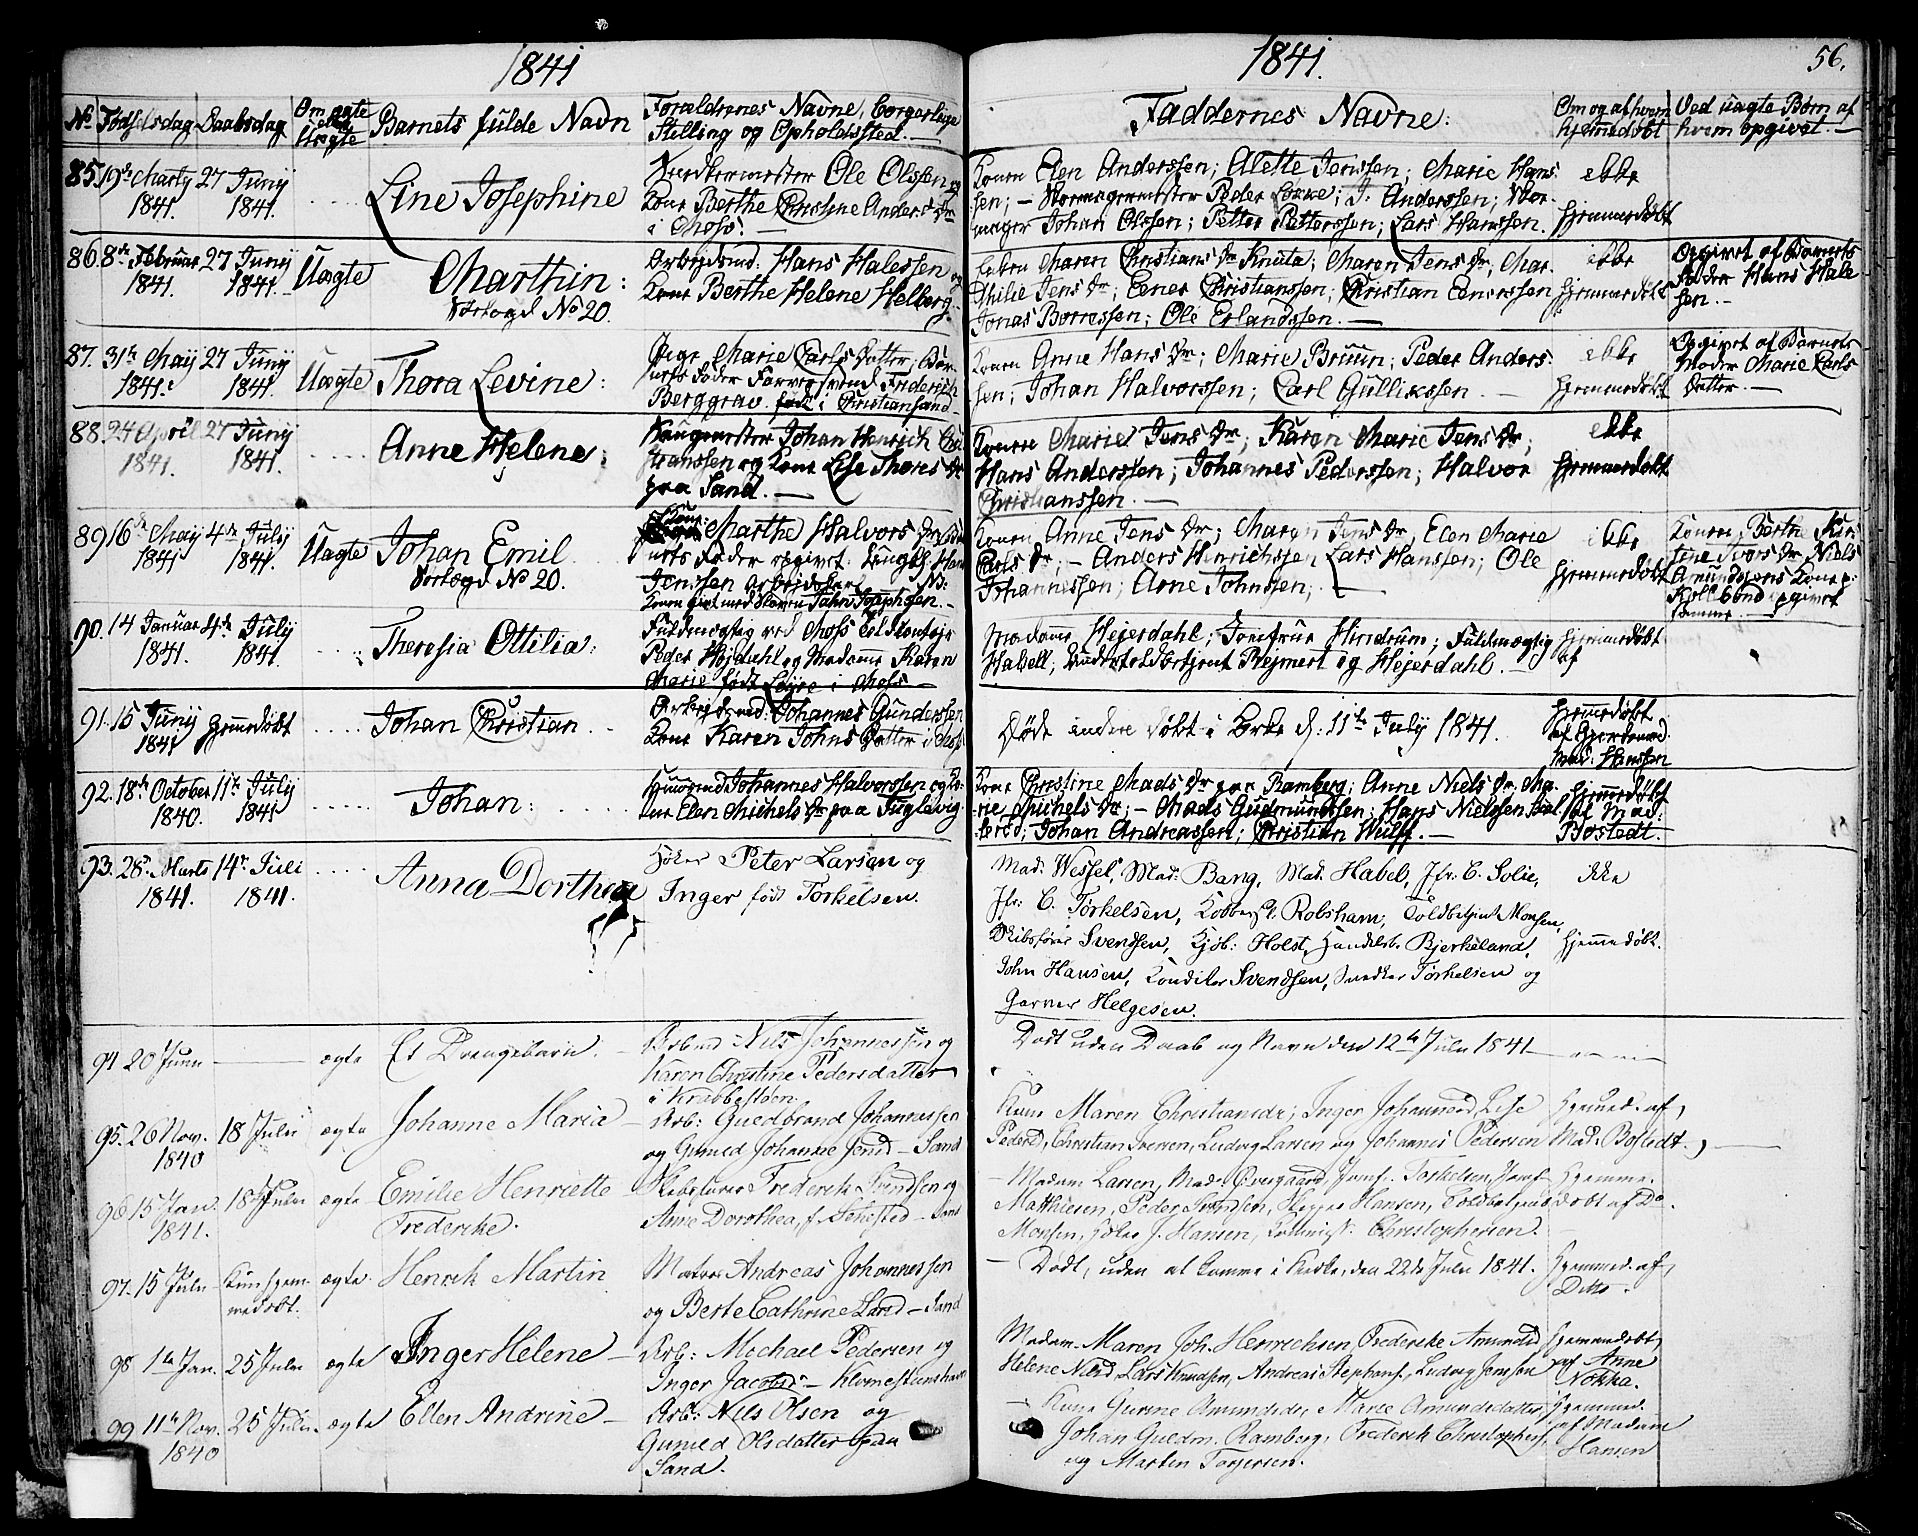 1841
1841.
56.
No Fødselsdag Daabsdag Om ægte eller Uægte Barnets fulde Navn Forældrenes Navne, Borgerlige Stilling og Opholdssted.
Faddernes Navne: Om og af hvem hjemmedøbt Ved uægte Børn af hvem opgivet.
85. 19de Marty 1841. 27 Juny 1841. Line Josephine
Ole Olssen og
Kone Berthe Christine Anders Dr
i Moss.
Konen Elen Anderssen; Alette Jenssen; Marie Hans
sen; Peder Løkke; J. Anderssen;
mager Johan Olssen; Petter Petterssen; Lars Hanssen.
ikke hjemmedøbt
86. 8de Februar 1841. 27 Juny 1841. Uægte Marthin:
Vorlagd No 20.
Arbejdsmd. Hans Halessen og
Kone Berthe Helene Helberg.
Maren Christians Dr Knuta; Maren Jens Dr; Mar.
thilie Jens Dr; Ener Christianssen; Christian Enerssen
Jonas Borressen; Ole Erlandssen.
ikke hjemmedøbt
Opgivet af Barnets
Fader Hans Hale
sen.
87. 31te May 1841. 27 Juny 1841. Uægte Thora Levine:
Pige Marie Carls Datter; Bar-
nets Fader Farversvend Frederich
Berggrav født i Christiansand
Konen Anne Hans Dr; Marie Bruun; Peder Anders
sen; Johan Halvorssen; Carl Gullikssen.
ikke hjemmedøbt
Opgivet af Barnets
Moder Marie Carls
datter.
88. 24 April 1841. 27 Juny 1841. Anne Helene;
Johan Henrich Chri
stianssen og Kone Lise Thores Dr
paa Sand.
Konen Marie Jens Dr; Karen Marie Jens Dr;
Hans Anderssen; Johannes Pederssen; Halvor
Christianssen.
ikke hjemmedøbt
89. 16de May 1841 4de July 1841. Uægte Johan Emil
Vorlagd No 20.
Marthe Halvors Dr; Bar
nets Fader opgivet Ungkl. Hans
Jenssen Arbejdskarl
Konen givt med Slaven John Josephsen.
Konen Anne Jens Dr; Maren Jens Dr; Elen Marie
Carls Dr; Anders Henrichssen Lars Hanssen; Ole
Johannessen; Arne Johnssen;
ikke hjemmedøbt
Konen Berthe Kir
stine Ivers Dr Niels
Amundssens Kone p:
Kolbond opgivet
samme.
90. 14 Januar 1841. 4de July 1841. Theresia Ottilia:
Fuldmægtig ved Moss
Peder Hejerdahl og Madame Karen
Marie født Lejre i Moss
Madame Hejerdahl; Jomfrue Hindrum; Fuldmægtig
Habell; Undertoldbetjent Rejmert og Hejerdahl.
hjemmedøbt
af
91. 15 Juny 1841 hjemedøbt Johan Christian
Arbejdsmd: Johannes Gunderssen
Kone Karen Johns Datter i Moss
Døde inden døbt i Kirke d: 11te July 1841.
hjemedøbt
af Gjordemod.
Mad: Hanssen
92. 18de October 1840. 11te July 1841 Johan:
Johannes Halvorssen og Ko
ne Elen Michels Dr paa Fuglevig
Kone Christine Mads Dr paa Ramberg; Anne Niels Dr, Ma
rie Michels Dr; Mads Gudmundssen; Hans Nielssen
Johan Andreassen; Christian Wulff.
hjemedøbt
af Mad:
Bostedt.
93. 28de Marts 1841. 14de Juli 1841. Anna Dorthea
Høker Peter Larsen og
Inger født Torkelsen.
Mad: Wessel, Mad: Bang, Mad: Habel, Jfr: C. Solie,
Jfr: C. Torkelsen, Kobbersl: Robsham, Toldbetjent Monsen,
Skibsfører Svendsen, Kjöb: Holst, Handelsb: Bjerkeland,
John Hansen, Konditor Svendsen, Snedker Torkelsen og
Garver Helgesen.
ikke
hjemmedøbt.
94 20 Juni ægte Et Drengebarn.
Arbmd Nils Johannessen og
Karen Christine Pedersdatter
i Krabbestøen
Død uden Daab og Navn den 12te Juli 1841
95. 26 Nov. 1840 18 Juli ægte Johanne Maria
Arb: Guldbrand Johannessen
og Gunild Johanne Jensd – Sand
Kone Maren Christiansdr; Inger Johannesd, Lise
Pedersd, Christian Iversen, Ludvig Larsen og Johannes Pedersen
Hjemmed. af
Mad. Bostedt.
96 15 Jan. 1841. 18 Juli ægte Emilie Henriette
Frederike.
Skibsfører Frederik Svendsen og
Anne Dorothea, f. Sehested –
Madam Larsen, Mad. Overgaard, Jomf. Torkelsen, Jomf
Matthiesen, Peder Svendsen, Hansen, Toldbetjent
Monsen, Høker J. Hansen, Christophersen.
Hjemme-
døbt af Do
97. 15 Juli Kun hjem-
medøbt. ægte Henrik Martin
Matros Andreas Johannessen
og Berte Cathrine Larsd – Sand
Dødt, uden at komme i Kirke, den 22de Juli 1841.
Hjemmed. af
Ditto.
98 1te Jan. 25 Juli ægte Inger Helene
Arb: Michael Pedersen og
Inger Jacobsd –
Madam Maren Joh. Henrichsen, Frederike Amundsd
Helene Nilsd, Lars Knudsen, Andreas Stephans., Ludvig Jenssen
Hjemmedøbt
af Anne
Nokka.
99 11te Nov. 1840 25 Juli. ægte Ellen Andrine
Arb: Nils Olsen og
Gunild Olsdatter paa
Sand.
Kone Gurine Amundsdr, Marie Amundsdatter,
Johan Guldm. Ramberg, Frederik Christophers.,
og Martin Torgersen.
Hjemmed.
af Madam
Hansen